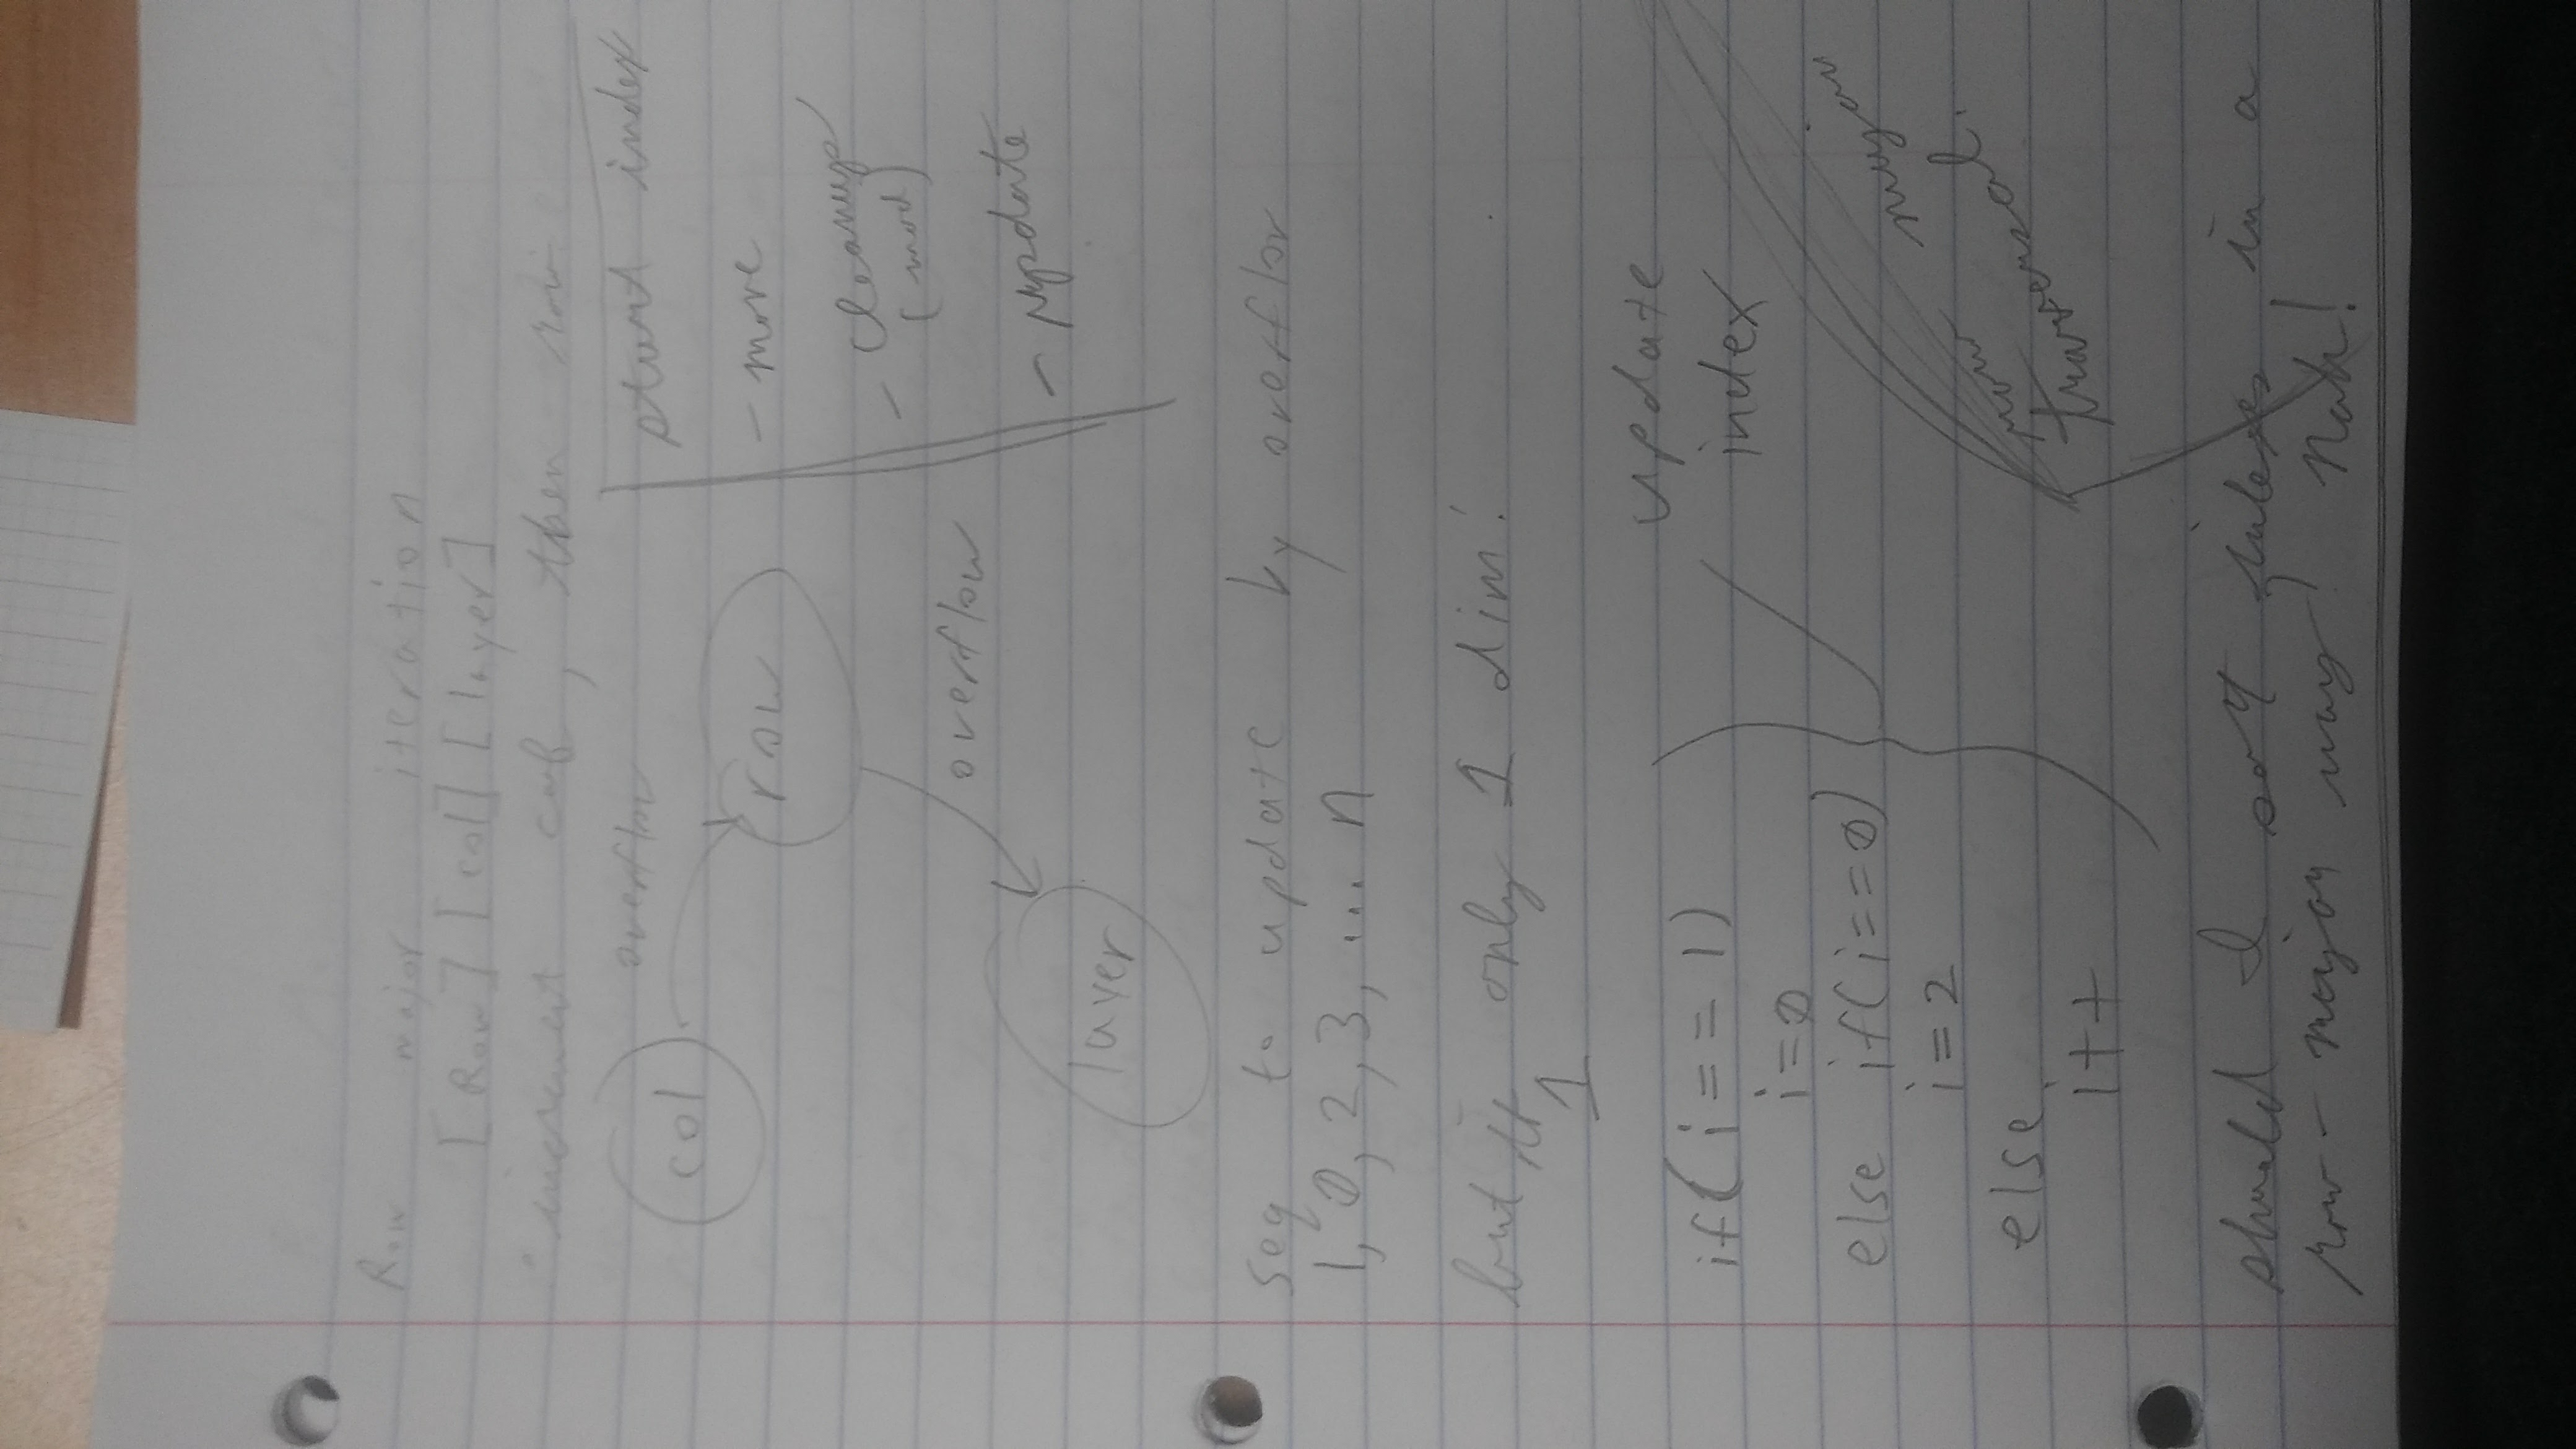 Row major iteration
[Row] [col] [layer]
increment col, then row
col
overflow
row
overflow
layer
start index
- move
- cleanup
(mod)
- update
seq to update by overflow
1, 0, 2, 3, ... n
but if only 1 dim!
1
if(i == 1)
i=0
else if(i==0)
i=2
else
i++
update
index
row major
traversal.
should I sort indexes in a
row-major way? Nah!